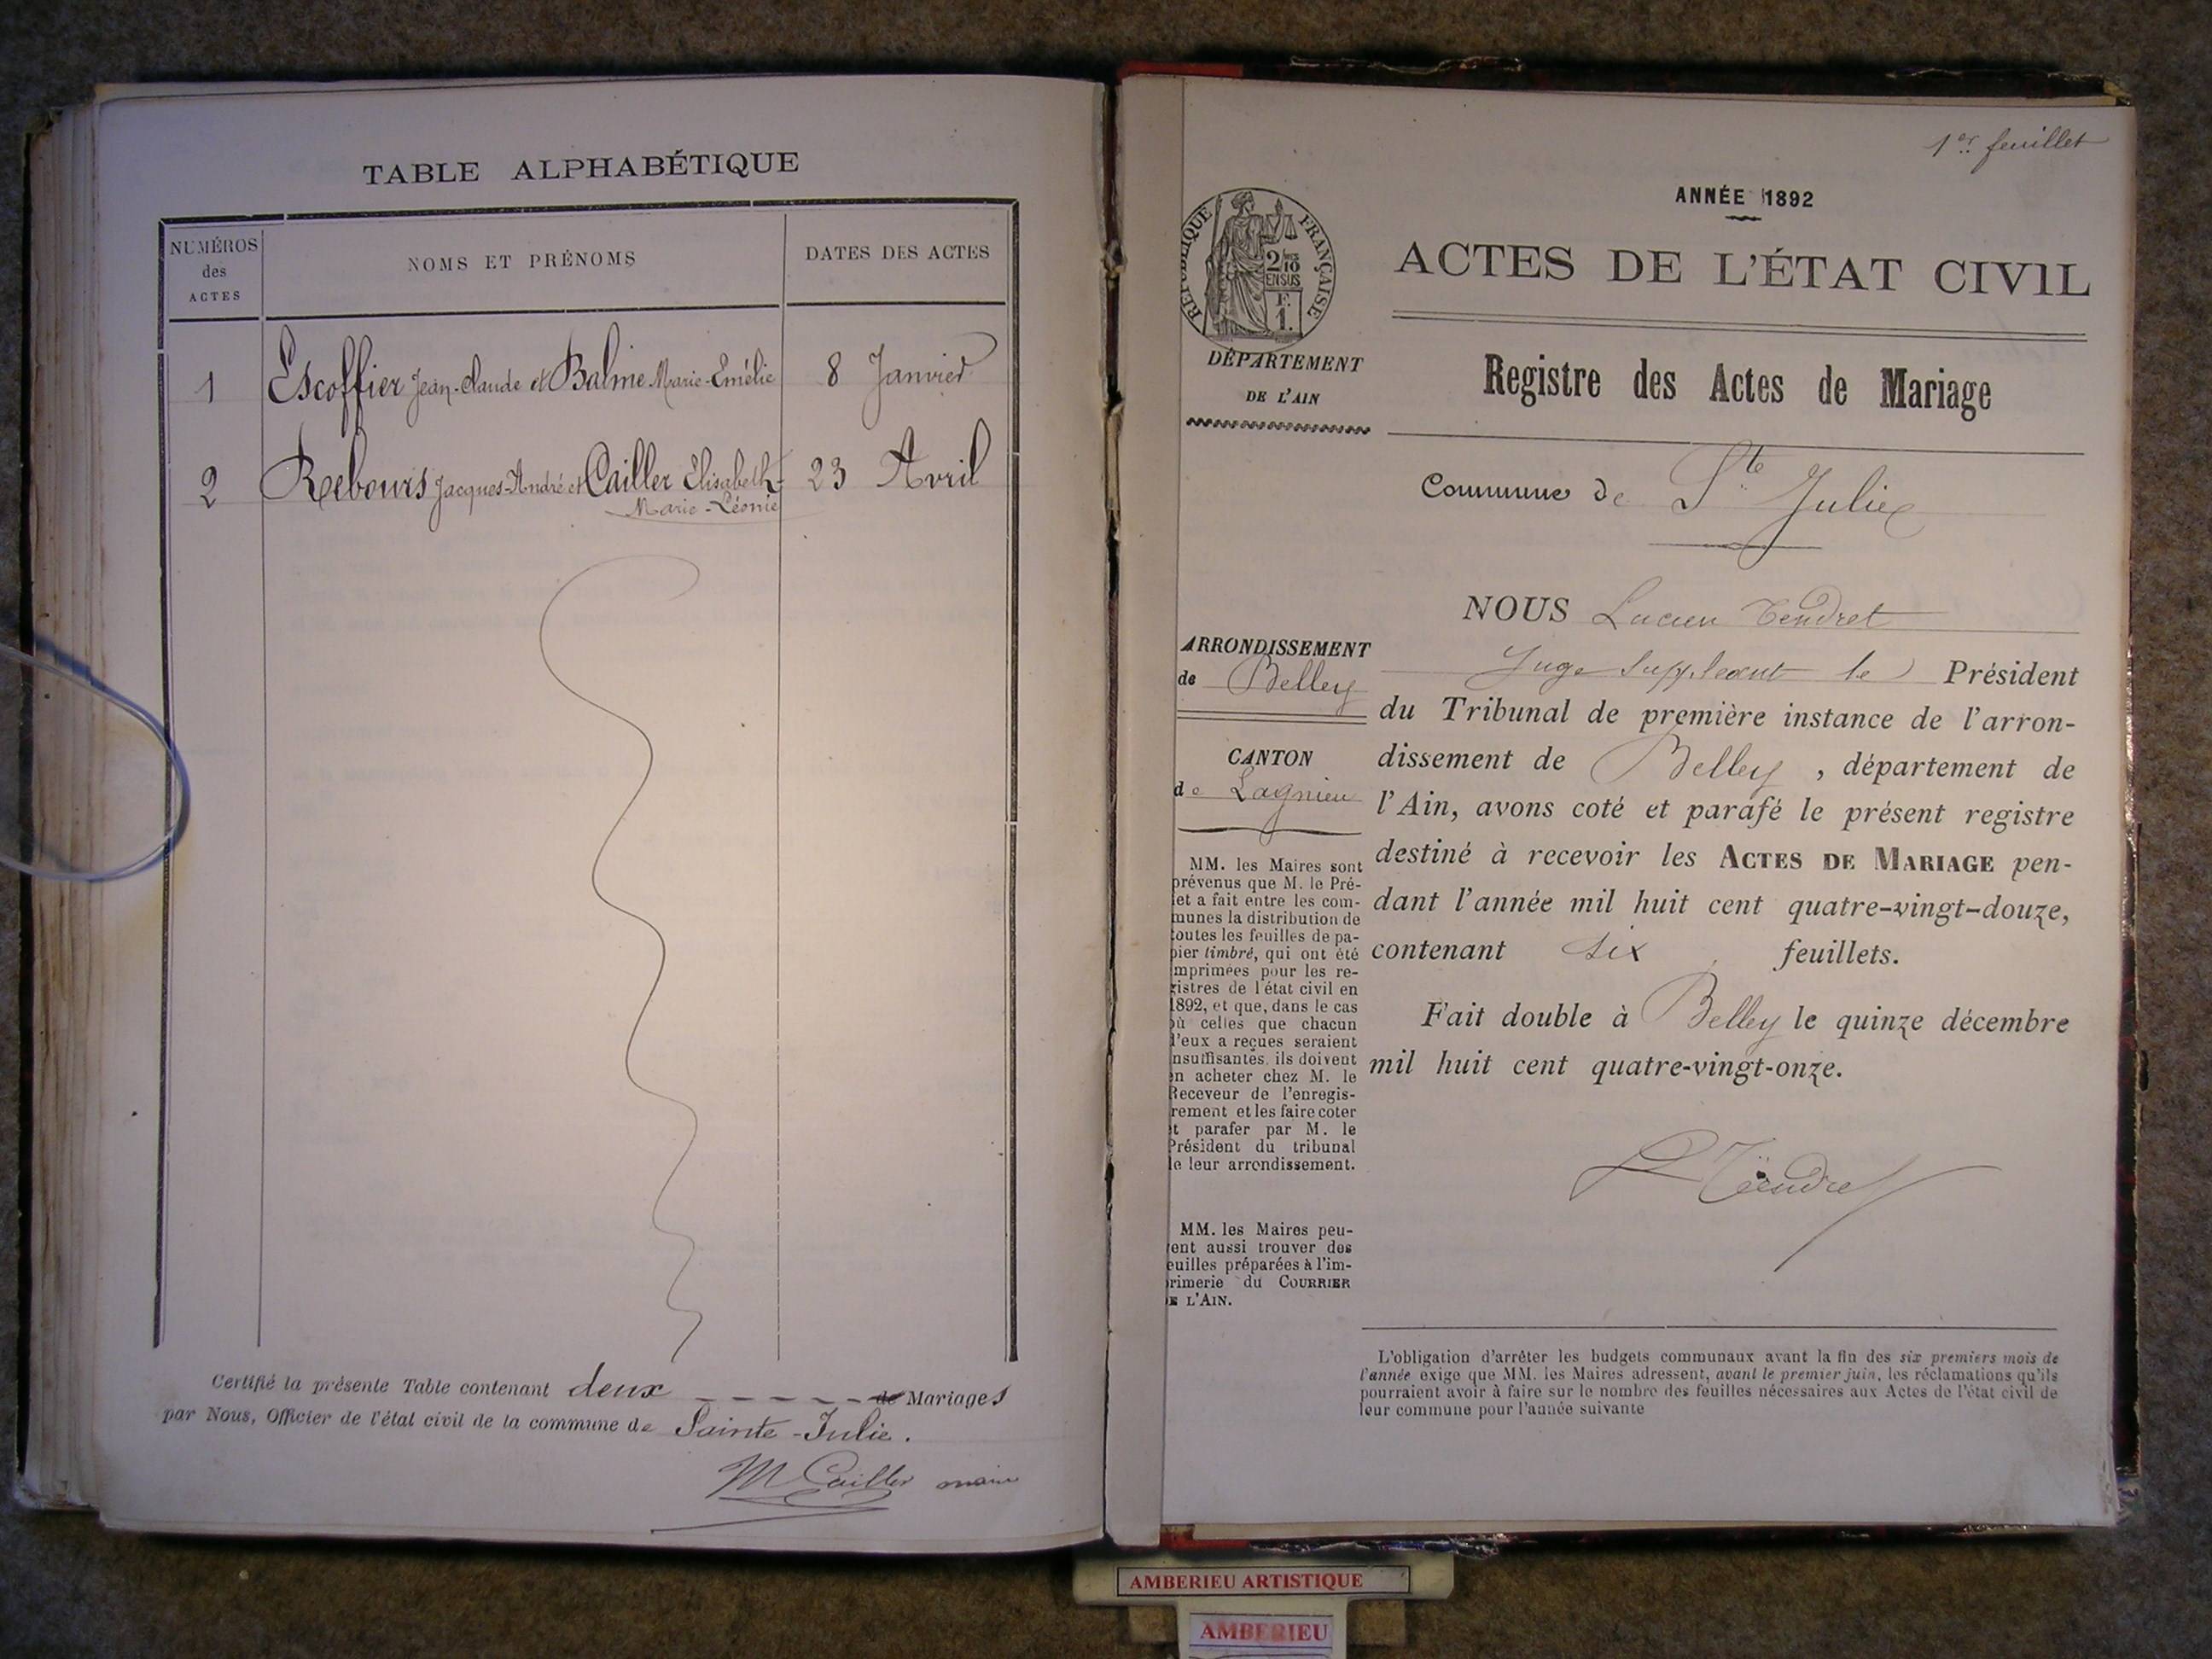 TABLE ALPHABÉTIQUE
NUMÉROS
des
ACTES
NOMS ET PRÉNOMS
DATES DES ACTES
1 Escoffier Jean-Claude et Balme Marie-Emélie 8 Janvier
2 Rebours Jacques-André et Cailler Elisabeth- 23 Avril
Marie-Léonie
Certifié la présente Table contenant deux de Mariages
par Nous, Officier de l'état civil de la commune de Sainte-Julie.
M Cailler maire
1er feuillet
ANNÉE 1892
RÉPUBLIQUE FRANÇAISE
2/10
EN SUS
F.
1.
ACTES DE L'ÉTAT CIVIL
DÉPARTEMENT
DE L'AIN
Registre des Actes de Mariage
Commune de Ste Julie
NOUS Lucien Tendret
Juge suppléant le Président
du Tribunal de première instance de l'arron-
dissement de Belley, département de
l'Ain, avons coté et parafé le présent registre
destiné à recevoir les ACTES DE MARIAGE pen-
dant l'année mil huit cent quatre-vingt-douze,
contenant six feuillets.
Fait double à Belley le quinze décembre
mil huit cent quatre-vingt-onze.
L Tendret
ARRONDISSEMENT
de Belley
CANTON
de Lagnieu
MM. les Maires sont
prévenus que M. le Pré-
et a fait entre les com-
munes la distribution de
toutes les feuilles de pa-
pier timbré, qui ont été
mprimées pour les re-
gistres de l'état civil en
1892, et que, dans le cas
où celles que chacun
d'eux a reçues seraient
nsuffisantes, ils doivent
en acheter chez M. le
Receveur de l'enregis-
rement et les faire coter
et parafer par M. le
Président du tribunal
de leur arrondissement.
MM. les Maires peu-
vent aussi trouver des
euilles préparées à l'im-
primerie du COURRIER
DE L'AIN.
L'obligation d'arrêter les budgets communaux avant la fin des six premiers mois de
l'année exige que MM. les Maires adressent, avant le premier juin, les réclamations qu'ils
pourraient avoir à faire sur le nombre des feuilles nécessaires aux Actes de l'état civil de
leur commune pour l'année suivante
AMBERIEU ARTISTIQUE
AMBERIEU